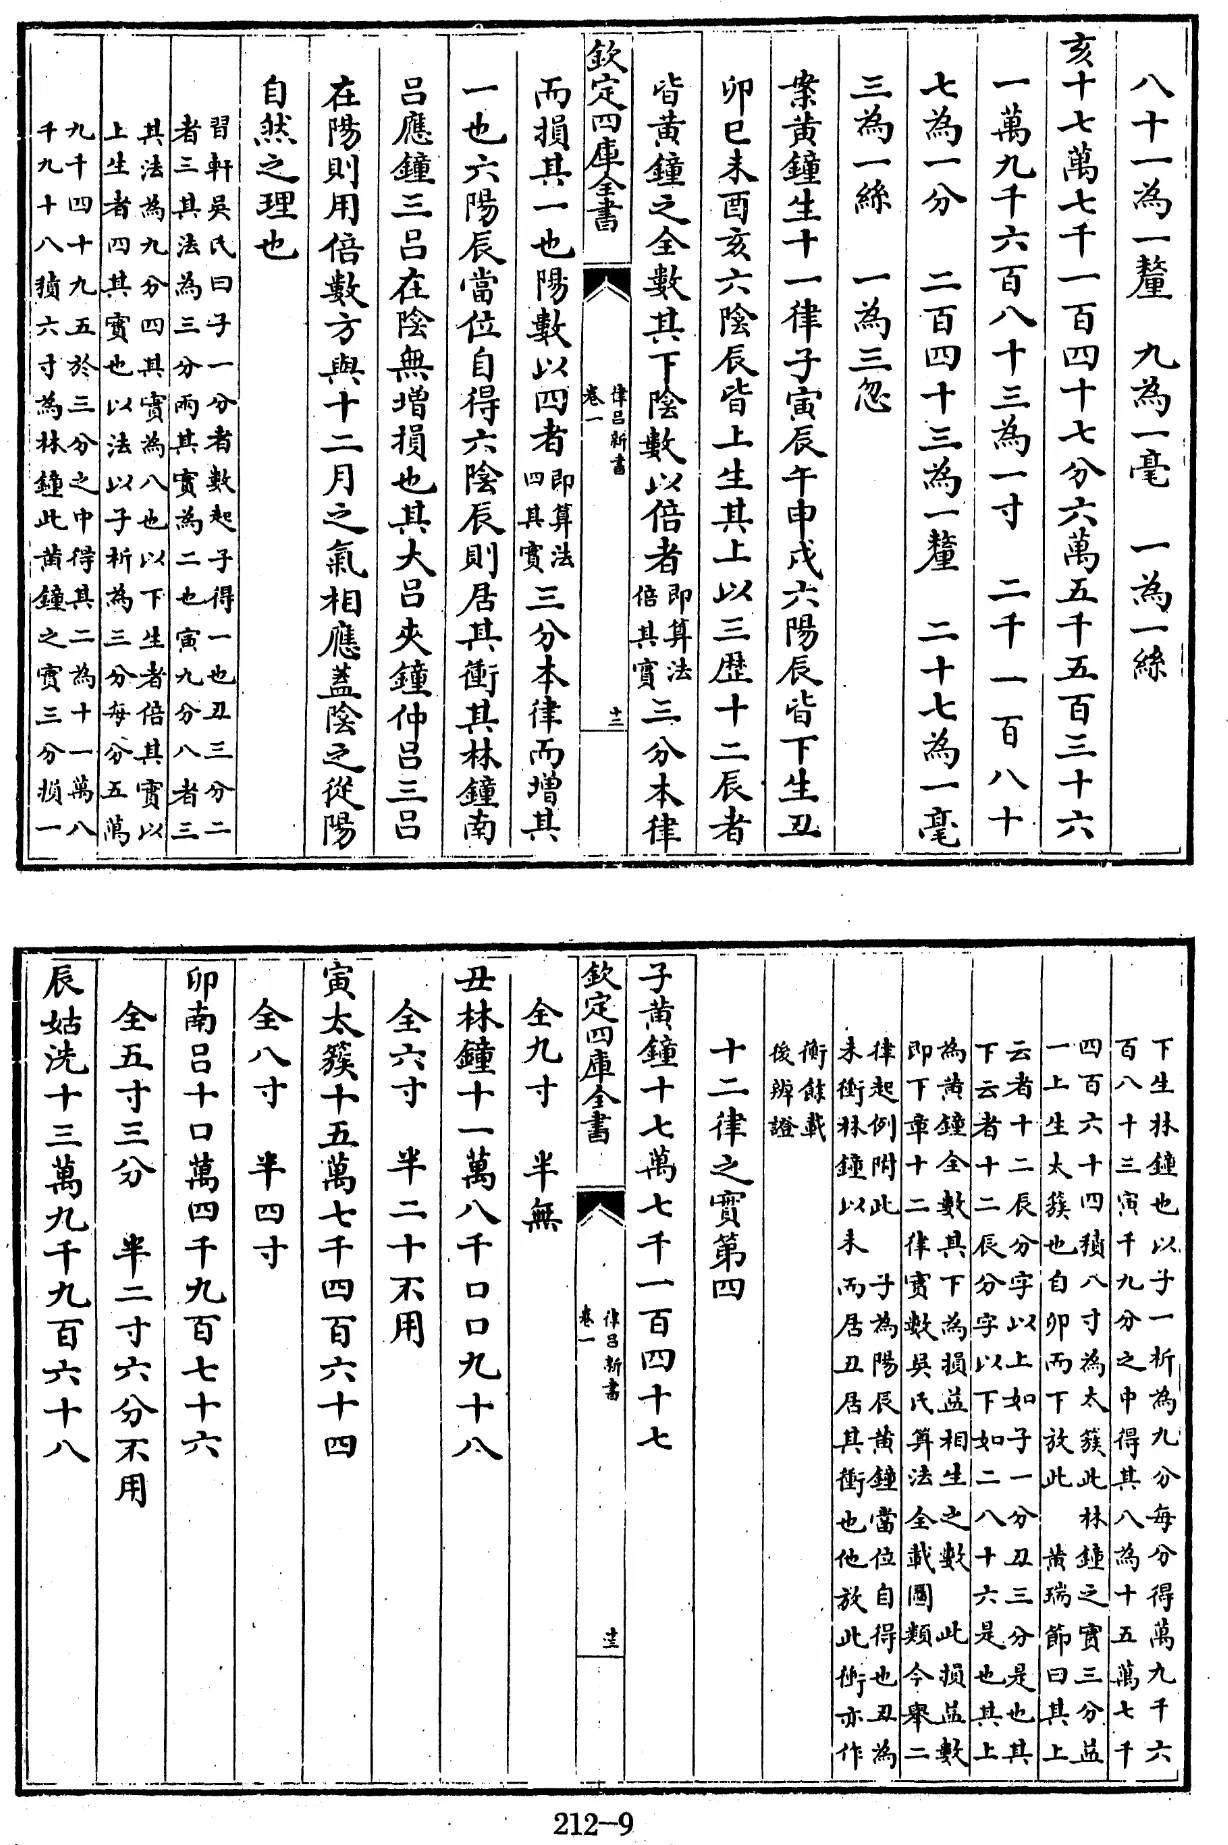 八十一為一釐　九為一毫　一為一絲
亥十七萬七千一百四十七分六萬五千五百三十六
一萬九千六百八十三為一寸　二千一百八十
七為一分　二百四十三為一釐　二十七為一毫
三為一絲　一為三忽
案黃鐘生十一律子寅辰午申戌六陽辰皆下生丑
卯巳未酉亥六陰辰皆上生其上以三歴十二辰者
皆黃鐘之全數其下陰數以倍者即算法倍其實三分本律
欽定四庫全書
律呂新書
卷一
十二
而損其一也陽數以四者即算法四其實三分本律而增其
一也六陽辰當位自得六陰辰則居其衝其林鐘南
呂應鐘三呂在陰無增損也其大呂夾鐘仲呂三呂
在陽則用倍數方與十二月之氣相應蓋陰之從陽
自然之理也
習軒吳氏曰子一分者數起子得一也丑三分二
者三其法為三分兩其實為二也寅九分八者三
其法為九分四其實為八也以下生者倍其實以
上生者四其實也以法以子析為三分每分五萬
九千四十九五於三分之中得其二為十一萬八
千九十八積六寸為林鐘此黃鐘之實三分損一
下生林鐘也以子一析為九分每分得萬九千六
百八十三寅千九分之中得其八為十五萬七千
四百六十四積八寸為太簇此林鐘之實三分益
一上生太簇也自卯而下放此　黃瑞節曰其上
云者十二辰分字以上如子一分丑三分是也其
下云者十二辰分字以下如二八十六是也其上
為黃鐘全數其下為損益相生之數　此損益數
即下章十二律實數吳氏算法全載圖類今舉二
律起例附此　子為陽辰黃鐘當位自得也丑為
未衝林鐘以未而居丑居其衝也他放此衝亦作
衡餘載
後辨證
十二律之實第四
子黃鐘十七萬七千一百四十七
欽定四庫全書
律呂新書
卷一
十三
全九寸　半無
丑林鐘十一萬八千口口九十八
全六寸　半二十不用
寅太簇十五萬七千四百六十四
全八寸　半四寸
卯南呂十口萬四千九百七十六
全五寸三分　半二寸六分不用
辰姑洗十三萬九千九百六十八
212-9